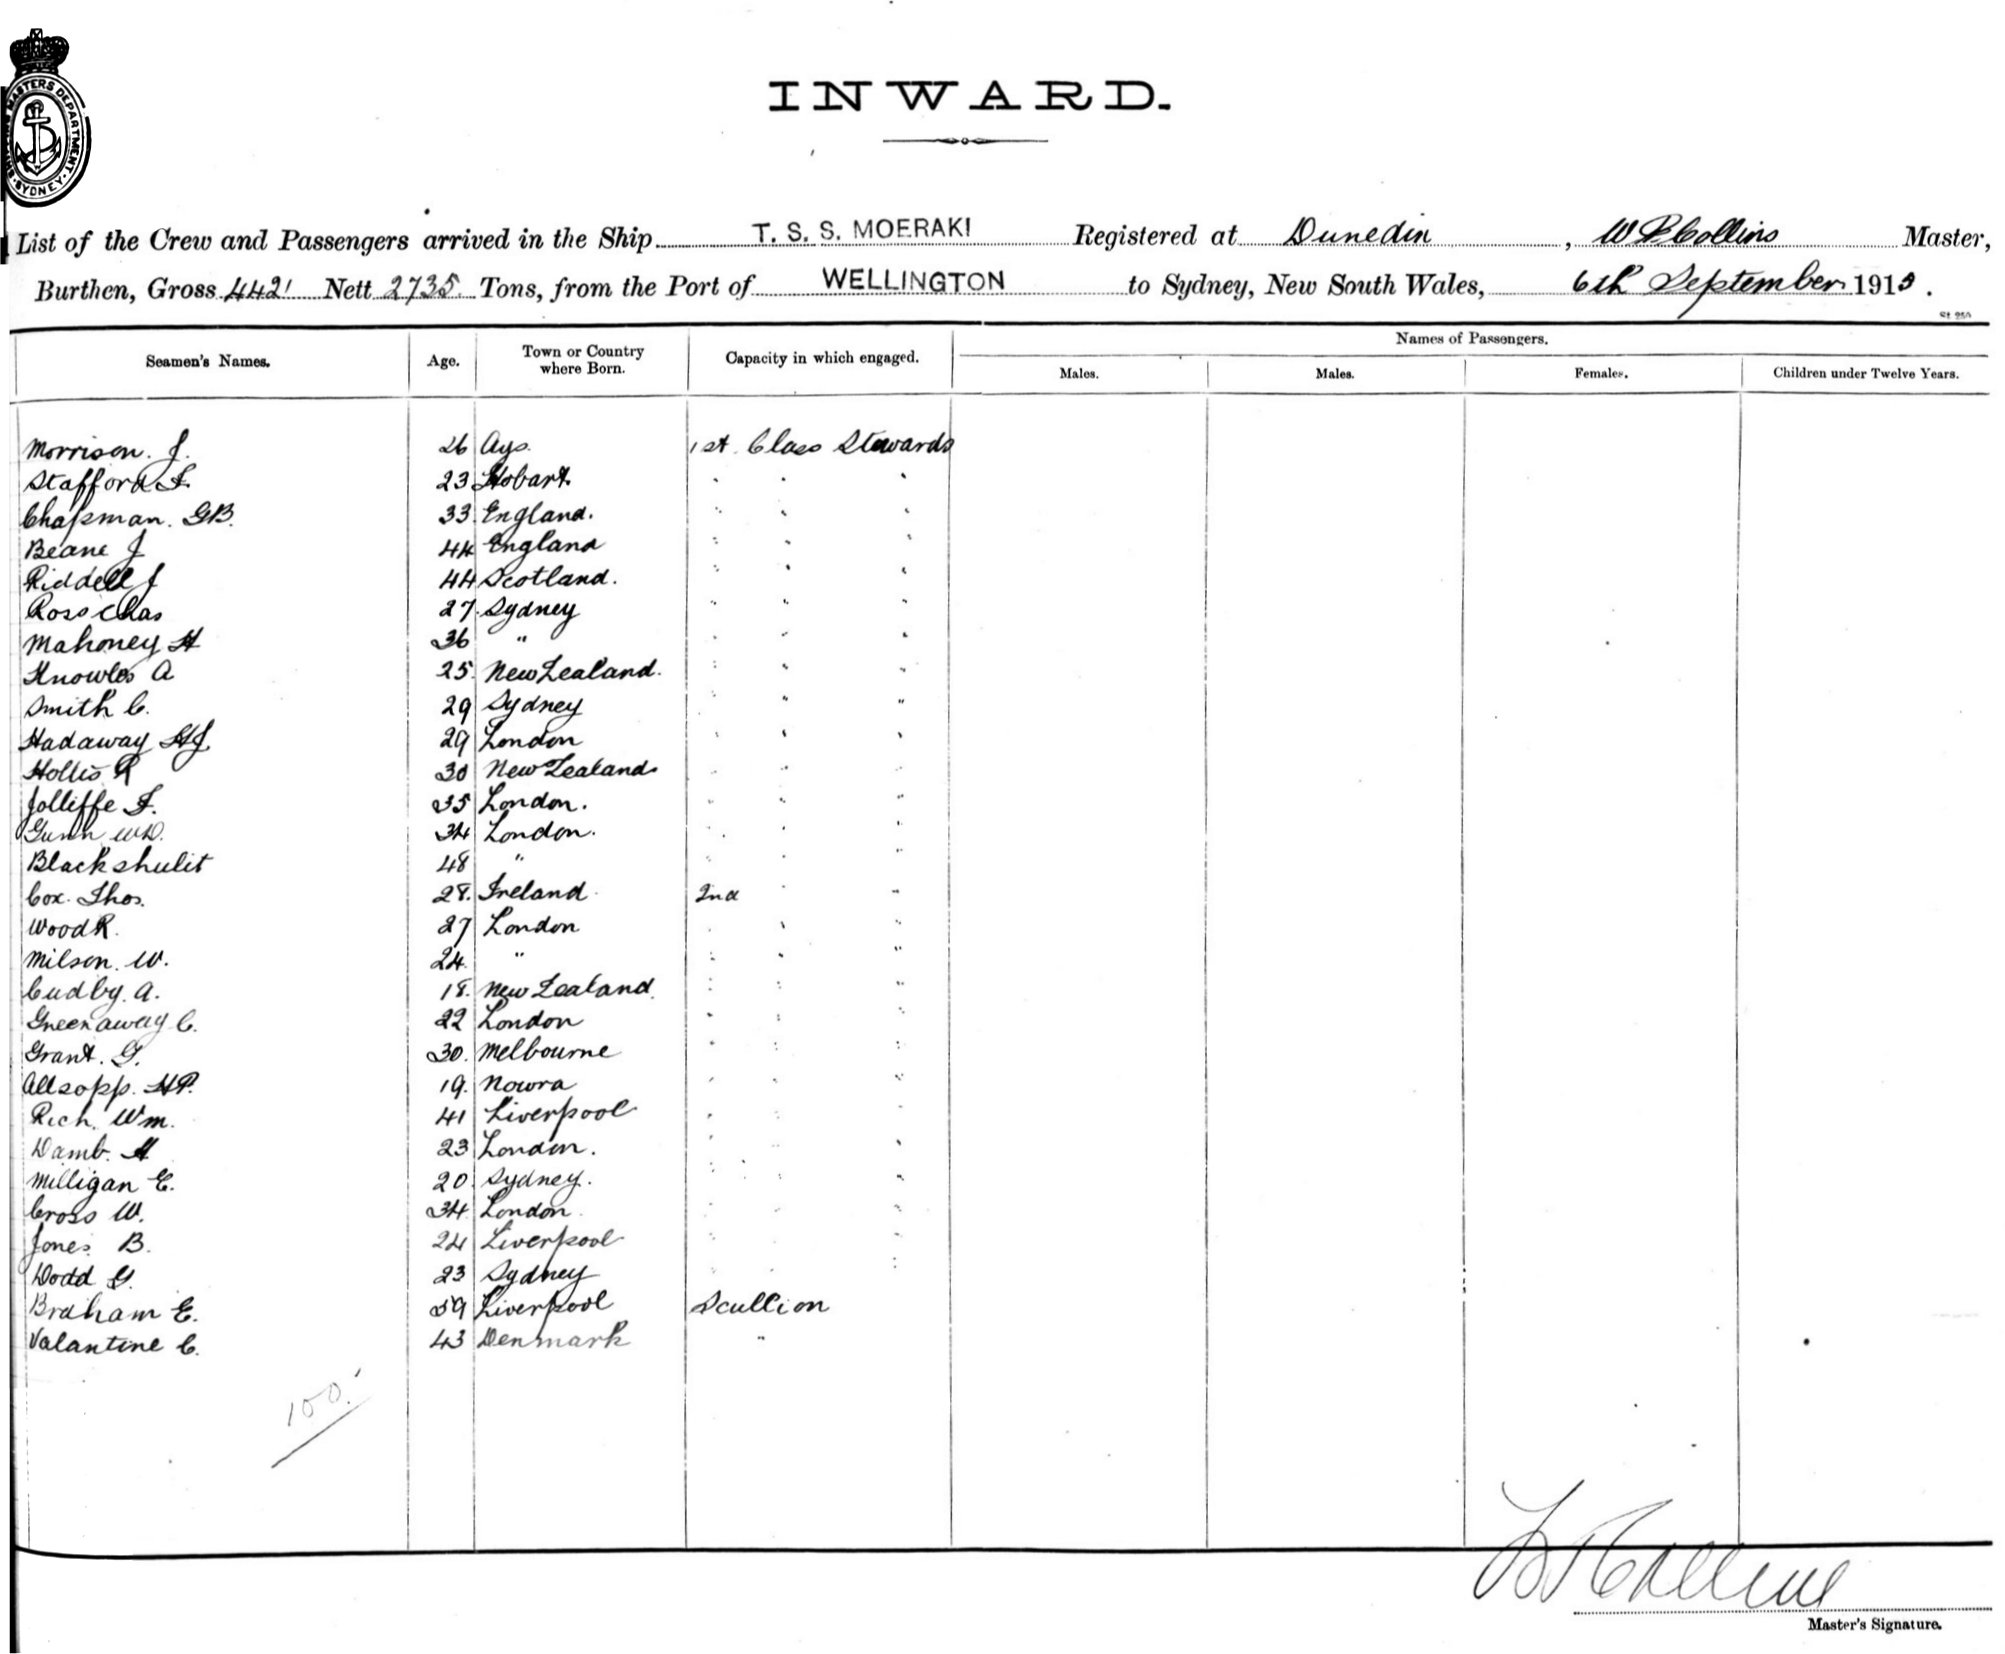 SHIPPING MASTERS DEPARTMENT. SYDNEY.
INWARD.
List of the Crew and Passengers arrived in the Ship T. S. S. MOERAKI Registered at Dunedin, W P Collins Master,
Burthen, Gross 4421 Nett 2735 Tons, from the Port of WELLINGTON to Sydney, New South Wales, 6th September 1913.
St 250
Names of Passengers.
Seamen's Names. Age. Town or Country where Born. Capacity in which engaged. Males. Males. Females. Children under Twelve Years.
Morrison. J. 26 Ays. 1st Class Stewards
Stafford F. 23 Hobart. " " "
Chapman. GB. 33 England. " " "
Beane J 44 England " " "
Riddell J 44 Scotland. " " "
Ross Chas 27. Sydney " " "
Mahoney H 36 " " " "
Knowles A 25. New Zealand. " " "
Smith C. 29 Sydney " " "
Hadaway HJ. 29 London " " "
Hollis R 30 New Zealand. " " "
Jolliffe F. 35 London. " " "
Gunn WD. 34 London. " " "
Blackshulit 48 " " " "
Cox. Thos. 28. Ireland. 2nd " "
Wood R. 27 London " " "
Milson. W. 24. " " " "
Cudby. A. 18. New Zealand. " " "
Greenaway C. 22 London " " "
Grant. G. 30. Melbourne " " "
Allsopp. HP. 19. Nowra " " "
Rich. Wm. 41 Liverpool " " "
Damb. H 23 London. " " "
Milligan E. 20. Sydney. " " "
Cross W. 34. London. " " "
Jones. B. 24 Liverpool " " "
Dodd G. 23 Sydney " " "
Braham E. 39 Liverpool Scullion
Valantine C. 43 Denmark "
100.
W P Collins
Master's Signature.